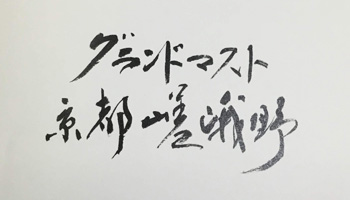 グランドマスト
京都嵯峨野